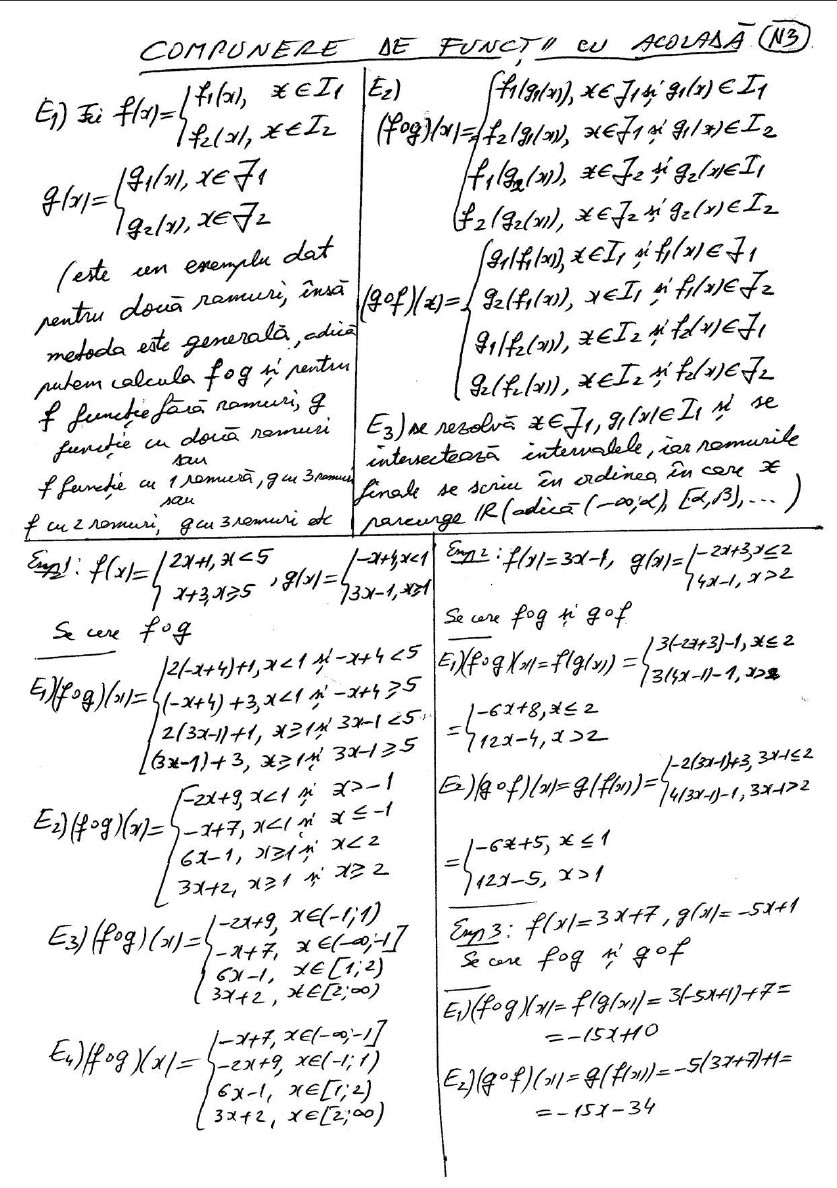 COMPUNERE DE FUNCȚII CU ACOLADĂ (N3)
E1) Fie f(x)={f1(x), x∈I1
f2(x), x∈I2
g(x)={g1(x), x∈J1
g2(x), x∈J2
(este un exemplu dat
pentru două ramuri, însă
metoda este generală, adică
putem calcula fog și pentru
f funcție fără ramuri, g
funcție cu două ramuri
sau
f funcție cu 1 ramură, g cu 3 ramuri
sau
f cu 2 ramuri, g cu 3 ramuri etc
E2)
(fog)(x)={f1(g1(x)), x∈J1 și g1(x)∈I1
f2(g1(x)), x∈J1 și g1(x)∈I2
f1(g2(x)), x∈J2 și g2(x)∈I1
f2(g2(x)), x∈J2 și g2(x)∈I2
(gof)(x)={g1(f1(x)), x∈I1 și f1(x)∈J1
g2(f1(x)), x∈I1 și f1(x)∈J2
g1(f2(x)), x∈I2 și f2(x)∈J1
g2(f2(x)), x∈I2 și f2(x)∈J2
E3) se rezolvă x∈J1, g1(x)∈I1 și se
intersectează intervalele, iar ramurile
finale se scriu în ordinea în care x
parcurge IR (adică (-∞;α), [α,β), ... )
Exmp1: f(x)={2x+1, x<5
x+3, x≥5 , g(x)={-x+4, x<1
3x-1, x≥1
Se cere fog
E1)(fog)(x)={2(-x+4)+1, x<1 și -x+4<5
(-x+4)+3, x<1 și -x+4≥5
2(3x-1)+1, x≥1 și 3x-1<5
(3x-1)+3, x≥1 și 3x-1≥5
E2)(fog)(x)={-2x+9, x<1 și x>-1
-x+7, x<1 și x≤-1
6x-1, x≥1 și x<2
3x+2, x≥1 și x≥2
E3)(fog)(x)={-2x+9, x∈(-1;1)
-x+7, x∈(-∞;-1]
6x-1, x∈[1;2)
3x+2, x∈[2;∞)
E4)(fog)(x)={-x+7, x∈(-∞;-1]
-2x+9, x∈(-1;1)
6x-1, x∈[1;2)
3x+2, x∈[2;∞)
Exmp2: f(x)=3x-1, g(x)={-2x+3, x≤2
4x-1, x>2
Se cere fog și gof
E1)(fog)(x)=f(g(x))={3(-2x+3)-1, x≤2
3(4x-1)-1, x>2
={-6x+8, x≤2
12x-4, x>2
E2)(gof)(x)=g(f(x))={-2(3x-1)+3, 3x-1≤2
4(3x-1)-1, 3x-1>2
={-6x+5, x≤1
12x-5, x>1
Exmp3: f(x)=3x+7, g(x)=-5x+1
Se cere fog și gof
E1)(fog)(x)=f(g(x))=3(-5x+1)+7=
=-15x+10
E2)(gof)(x)=g(f(x))=-5(3x+7)+1=
=-15x-34